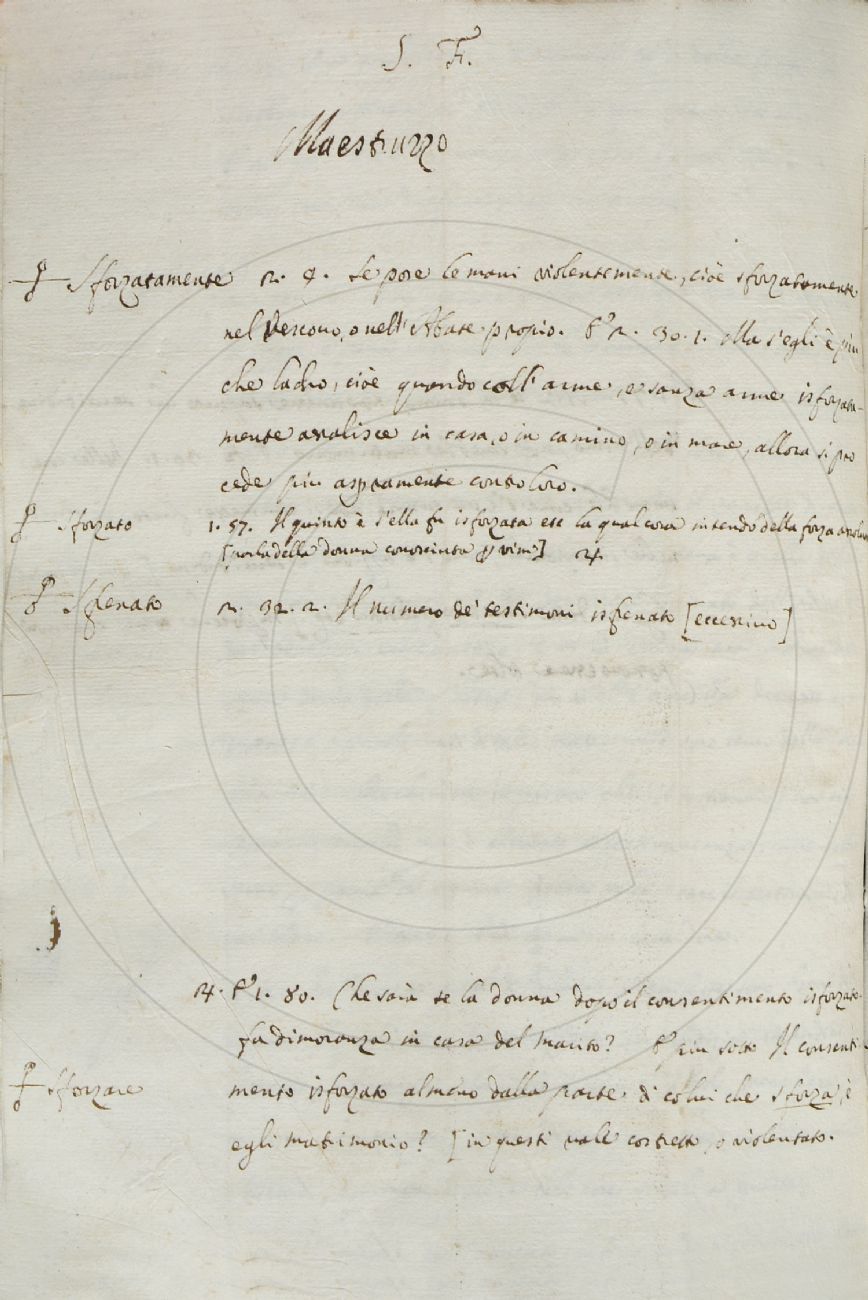 S. F.
Maestruzzo
Sforzatamente 2. 4. Se pose le mani violentemente, cioè sforzatamente
nel Vescovo, o nell'Abate propio. E 2. 30. 1. Ma s'egli è più
che ladro, cioè quando coll'arme, e sanza arme isforzata-
mente assalisce in casa, o in camino, o in mare, allora si pro
cede più aspramente contro loro.
Sforzato 1. 57. Il quinto è s'ella fu isforzata etc la qual cosa intendo della forza
[parla della donna conosciuta p vim]
Sfrenato 2. 32. 2. Il numero de' testimoni isfrenato [eccessivo]
E 1. 80. Che sarà se la donna dopo il consentimento isforzato
fa dimoranza in casa del marito? E più sotto Il consenti
Sforzare mento isforzato almeno dalla parte di colui che sforza, è
egli matrimonio? [in questi vale costretto, o violentato.